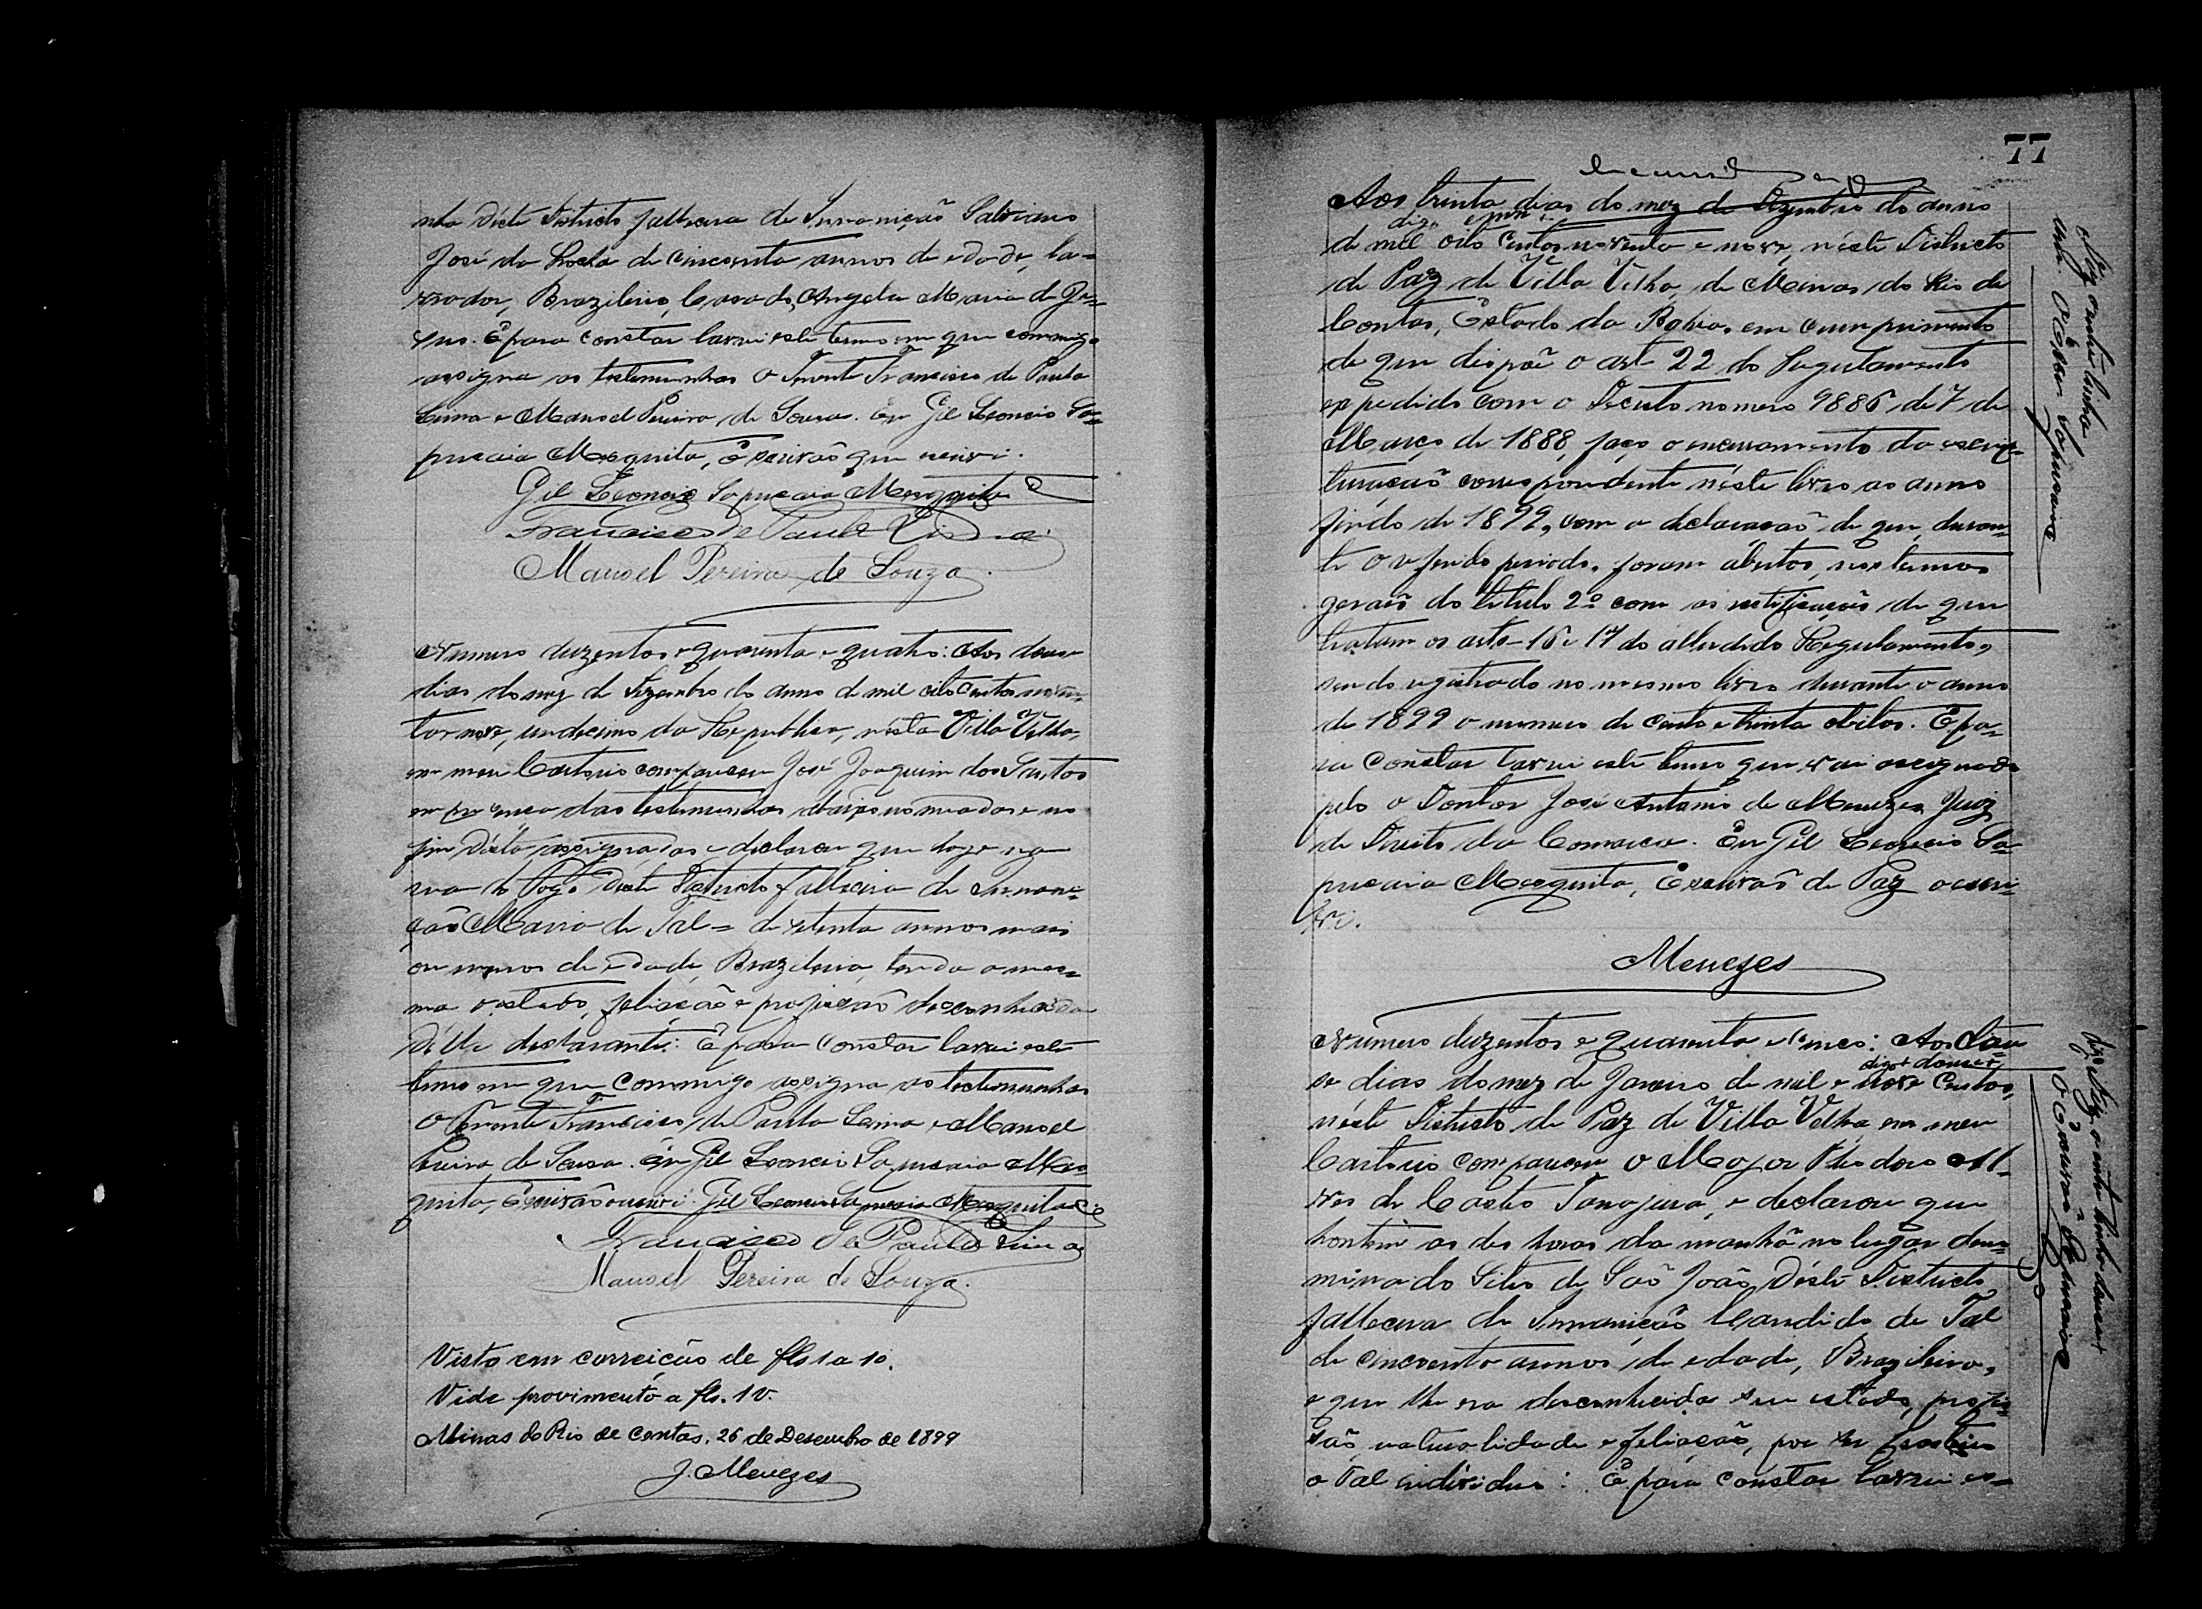 nho déste Districto fallecera de Innanição Salviano
José da Rocha de cincoenta annos de edade, la-
vrador, Brazileiro, Casado, Angela Maria de Je-
sus. E para constar lavrei este termo em que commigo
assigna as testemunhas o Tenente Francisco de Paula
Lima e Manoel Pereira de Sousa. Eu Gil Leoncio Sa-
pucaia Mesquita, Escrivão que escrevi.
Gil Leoncio Sapucaia Mesquita
Francisco de Paula Lima
Manoel Pereira de Souza.
Numero duzentos e quarenta e quatro: Aos
dias do mez de Dezembro do anno de mil oito centos noven-
ta e nove, undecimo da Republica, nésta Villa Velha,
em meu Cartorio compareceu José Joaquim dos Santos
em presença das testemunhas abaixo nomeadas e no
fim désta assignadas e declarou que hoje na
rua do Déste Districto fallecera de Innani-
ção Maria de Tal = de setenta annos mais
ou menos de edade, Brazileira, sendo a mes-
ma o estado, filiação e profissão desconhecida
délle declarante. E para constar lavrei este
termo em que commigo assigna as testemunhas
o Tenente Francisco de Paula Lima e Manoel
Pereira de Sousa. Eu Gil Leoncio Sapucaia Mes-
quita, Escrivão o escrevi. Gil Leoncio Sapucaia Mesquita
Francisco de Paula Lima
Manoel Pereira de Souza.
Visto em correição de fls 1 a 10.
Vide provimento a fls. 1 v.
Minas do Rio de Contas, 26 de Desembro de 1899
J. Menezes
77
Aos trinta dias do mez de Dezembro do anno
digo
de mil oito centos noventa e nove, néste Districto
de Paz de Villa Velha, de Minas do Rio de
Contas, Estado da Bahia, em cumprimento
de que dispõe o art 22 do Regulamento
expedido com o Decreto numero 9886 de 7 de
Março de 1888, faço o encerramento da escrip-
turação correspondente néste livro ao anno
findo de 1899, com a declaração de que, duran-
te o referido periodo, foram abertos, nos termos
geraes do titulo 2º com as rectificações de que
tratam os arts 16 e 17 do alludido Regulamento,
sendo registrado no mesmo livro durante o anno
de 1899 o numero de cento e trinta obitos. E pa-
ra constar lavrei este termo que vai assignado
pelo o Doutor José Antonio de Menezes, Juiz
de Direito da Comarca. Eu Gil Leoncio Sa-
pucaia Mesquita, Escrivão de Paz o escre-
vi.
Menezes
Numero duzentos e quarenta e cinco: Aos
digo
se dias do mez de Janeiro de mil e nove centos,
néste Districto de Paz de Villa Velha em meu
Cartorio compareceu o Major Theodoro Al-
ves de Castro Tanajura, e declarou que
hontem as des horas da manhã no lugar deno-
minado Sitio de São João, Déste Districto
fallecera de Innanição Candido de Tal
de cincoenta annos de edade, Brazileiro,
e que lhe era desconhecido seu estado, profis-
são, naturalidade e filiação, por ser
o Tal individuo: E para constar lavrei es-